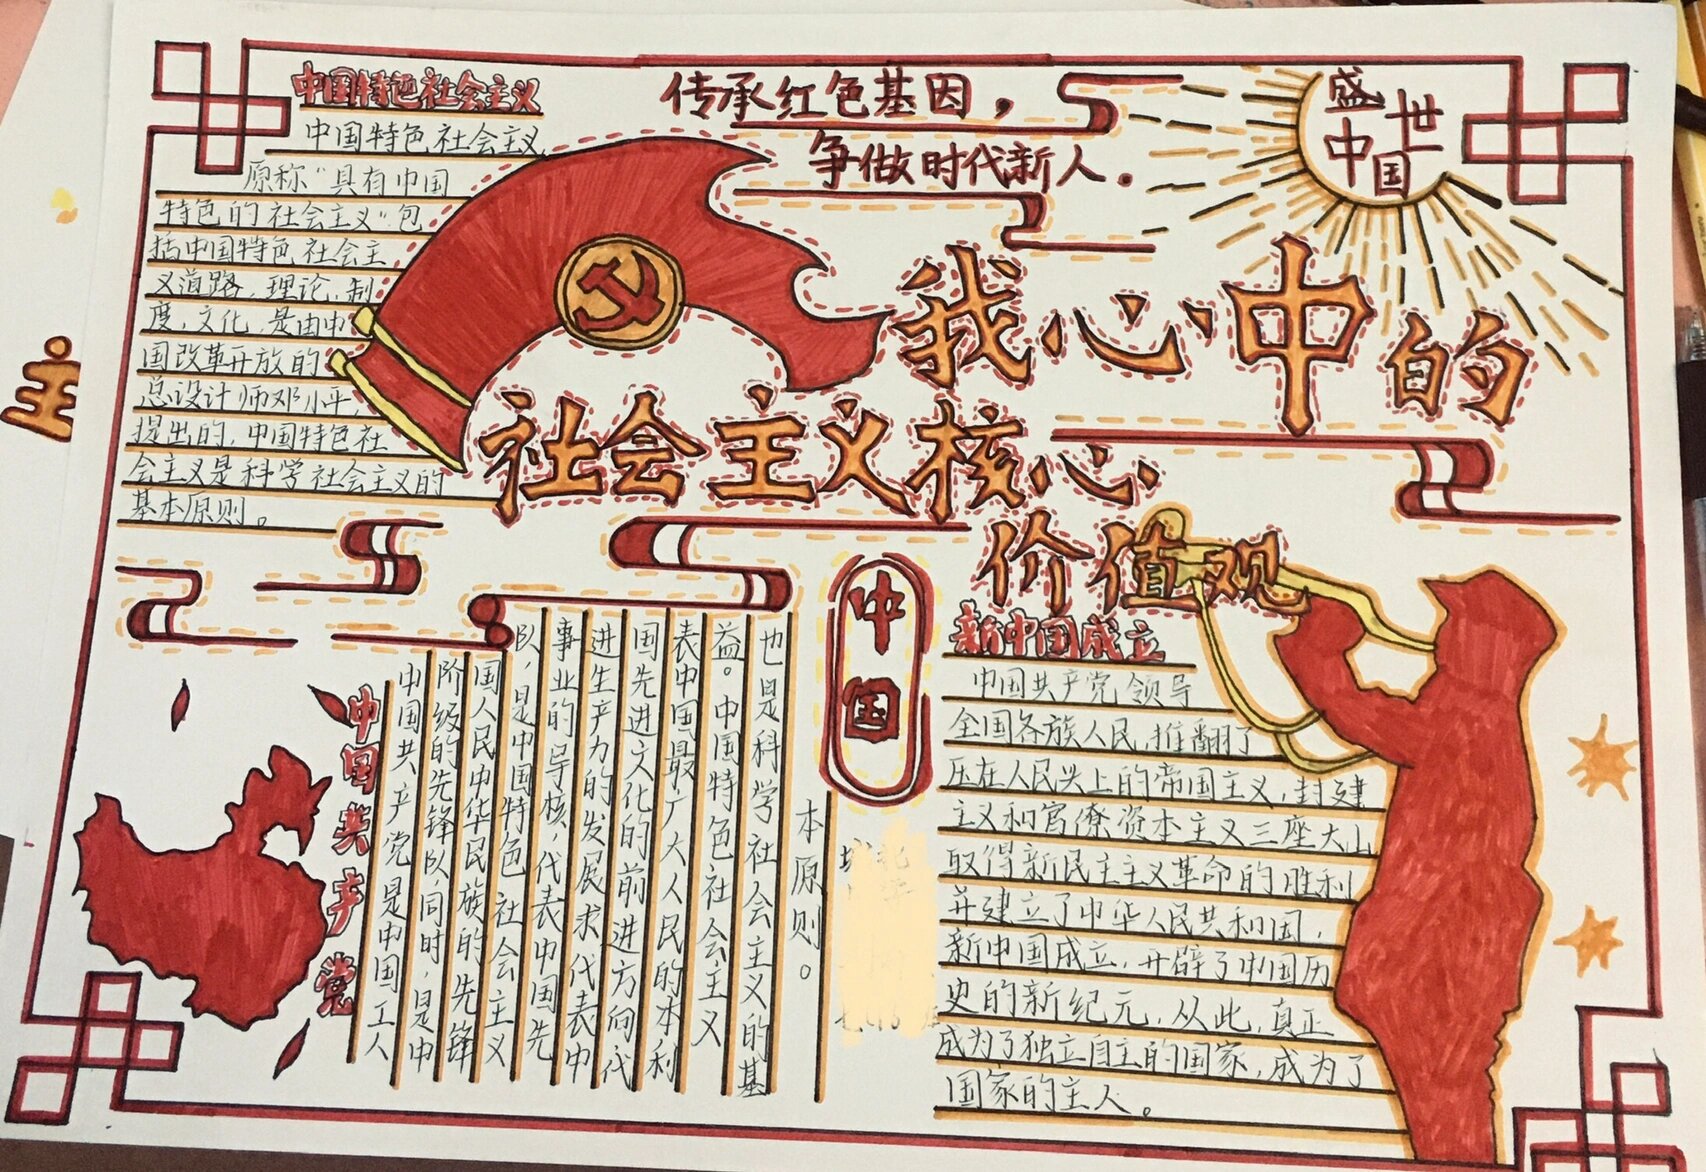 中国特色社会主义
中国特色社会主义
原称"具有中国
特色的社会主义"包
括中国特色社会主
义道路,理论,制
度,文化,是由中
国改革开放的
总设计师邓小平,
提出的,中国特色社
会主义是科学社会主义的
基本原则。
传承红色基因,
争做时代新人.
盛世
中国
我心中的
社会主义核心
价值观
中国
中国共产党
中国共产党是中国工人
阶级的先锋队,同时,是中
国人民中华民族的先锋
队,是中国特色社会主义
事业的导核,代表中国先
进生产力的发展求代表中
国先进文化的前进方向代
表中国最广大人民的本利
益。中国特色社会主义
也是科学社会主义的基
本原则。
新中国成立
中国共产党领导
全国各族人民,推翻了
压在人民头上的帝国主义,封建
主义和官僚资本主义三座大山
取得新民主主义革命的胜利
并建立了中华人民共和国,
新中国成立,开辟了中国历
史的新纪元,从此,真正
成为了独立自主的国家,成为了
国家的主人。
主